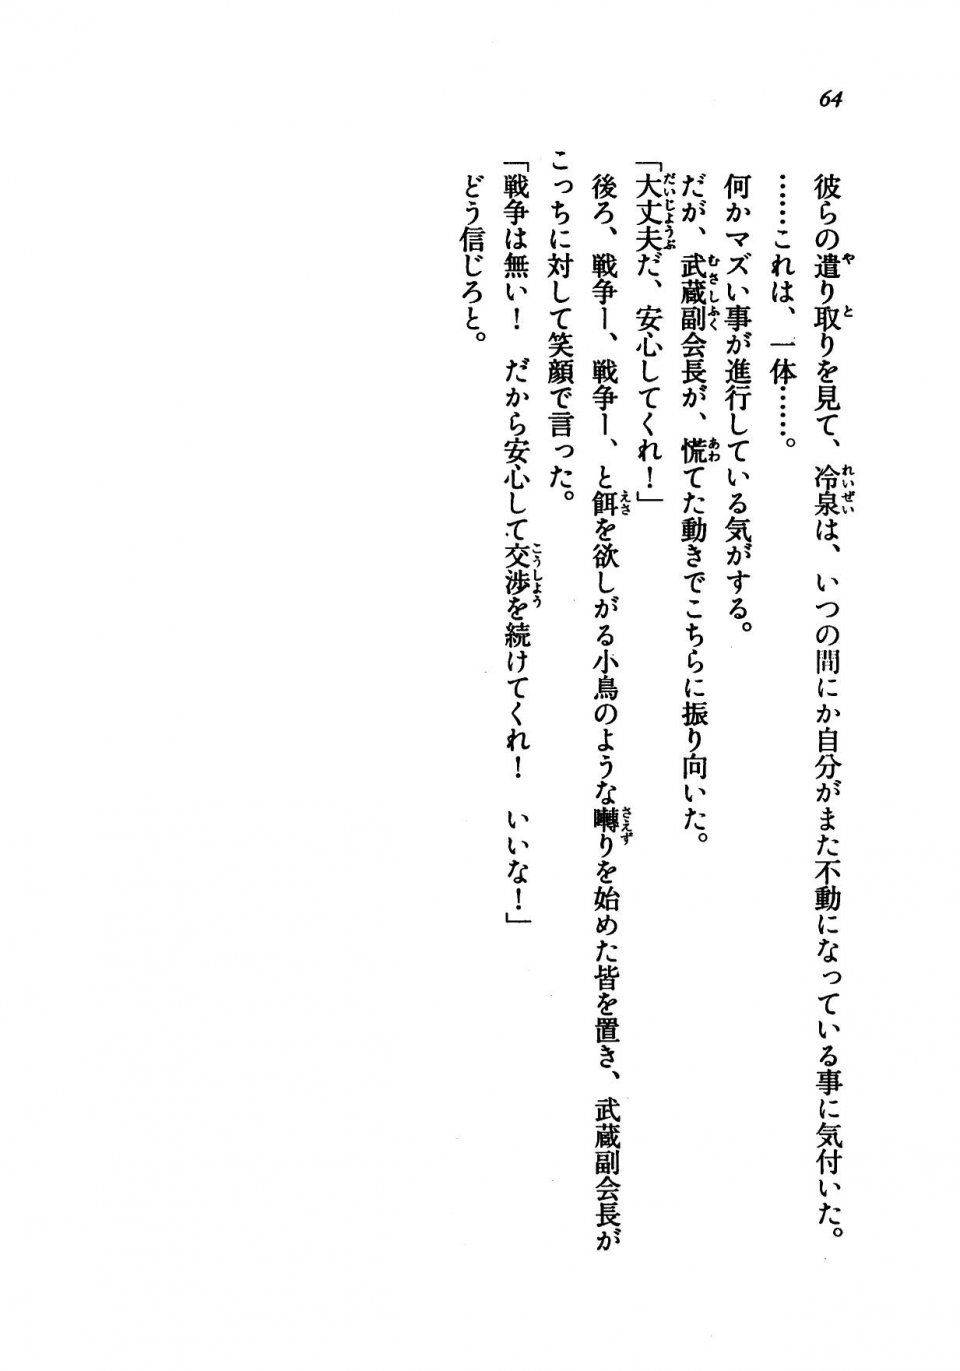 64
彼らの遣り取りを見て、冷泉は、いつの間にか自分がまた不動になっている事に気付いた。
……これは、一体……。
何かマズい事が進行している気がする。
だが、武蔵副会長が、慌てた動きでこちらに振り向いた。
「大丈夫だ、安心してくれ！」
後ろ、戦争ー、戦争ー、と餌を欲しがる小鳥のような囀りを始めた皆を置き、武蔵副会長が
こっちに対して笑顔で言った。
「戦争は無い！　だから安心して交渉を続けてくれ！　いいな！」
どう信じろと。